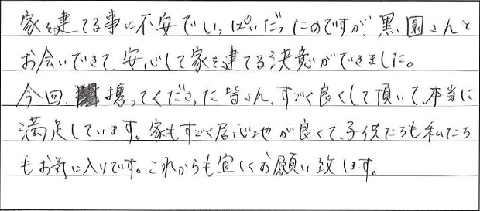 家を建てる事に不安でいっぱいだったのですが、黒園さんと
お会いできて、安心して家を建てる決意ができました。
今回 携ってくださった皆さん、すごく良くして頂いて、本当に
満足しています。家もすごく居心地が良くて、子供たちも私たち
もお気に入りです。これからも宜しくお願い致します。